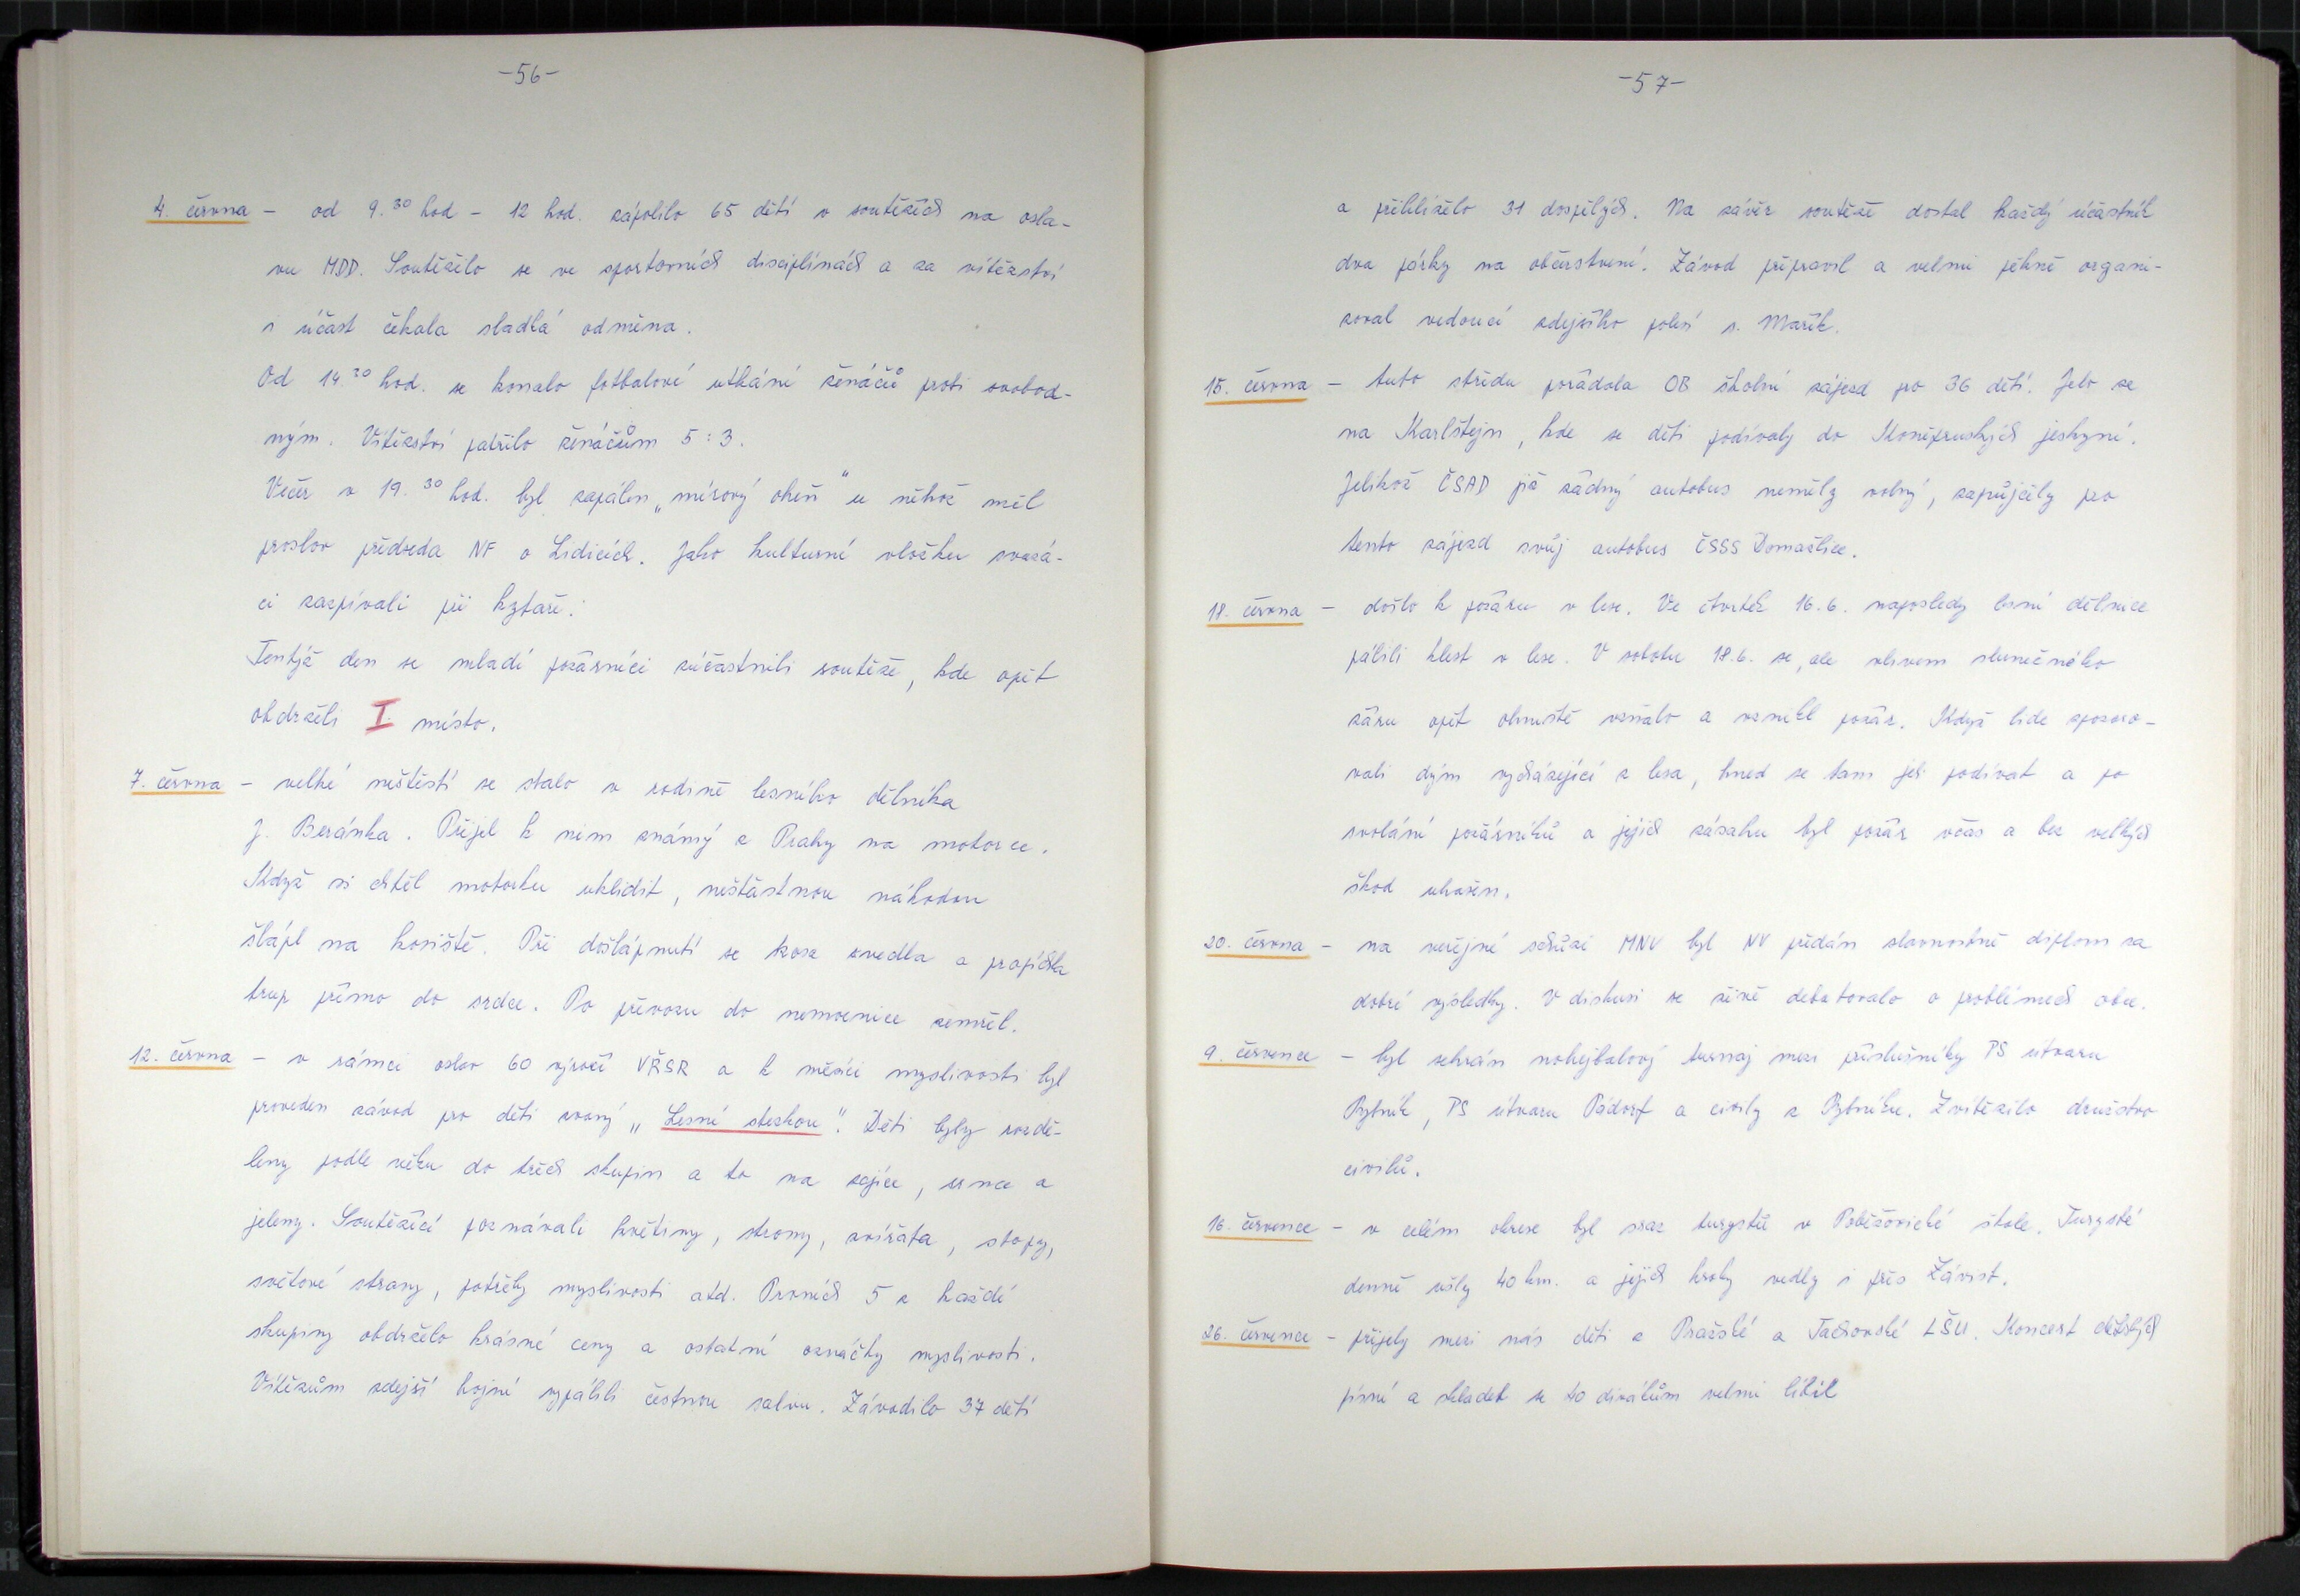 -56-
4. června - od 9.30 hod - 12 hod. zápolilo 65 dětí v soutěžích na osla-
vu MDD. Soutěžilo se ve sportovních disciplínách a za vítězství
i účast čekala sladká odměna.
Od 14.30 hod. se konalo fotbalové utkání ženáčů proti svobod-
ným. Vítězství patřilo ženáčům 5:3.
Večer v 19.30 hod. byl zapálen „mírový oheň" u něhož měl
proslov předseda NF o Lidicích. Jako kulturní vložku svazá-
ci zazpívali při kytaře.
Tentýž den se mladí požárníci zúčastnili soutěže, kde opět
obdrželi I. místo.
7. června - velké neštěstí se stalo v rodině lesního dělníka
J. Beránka. Přijel k nim známý z Prahy na motorce.
Když si chtěl motorku uklidit, nešťastnou náhodou
šlápl na kosiště. Při došlápnutí se kosa zvedla a propíchla
trup přímo do srdce. Po převozu do nemocnice zemřel.
12. června - v rámci oslav 60 výročí VŘSR a k měsíci myslivosti byl
proveden závod pro děti zvaný „Lesní stezkou". Děti byly rozdě-
leny podle věku do třech skupin a to na zajíce, srnce a
jeleny. Soutěžící poznávali květiny, stromy, zvířata, stopy,
světové strany, potřeby myslivosti atd. Prvních 5 z každé
skupiny obdrželo krásné ceny a ostatní oznáčky myslivosti.
Vítězům zdejší hajní vypálili čestnou salvu. Závodilo 37 dětí
-57-
a přihlíželo 31 dospělých. Na závěr soutěže dostal každý účastník
dva párky na občerstvení. Závod připravil a velmi pěkně organi-
zoval vedoucí zdejšího polesí s. Mařík.
15. června - tuto středu pořádala OB školní zájezd pro 36 dětí. Jelo se
na Karlštejn, kde se děti podívaly do Koněpruských jeskyní.
Jelikož ČSAD již žádný autobus neměly volný, zapůjčily pro
tento zájezd svůj autobus ČSSS Domažlice.
18. června - došlo k požáru v lese. Ve čtvrtek 16.6. naposledy lesní dělnice
pálili klest v lese. V sobotu 18.6. se, ale vlivem slunečného
žáru opět ohniště vzňalo a vznikl požár. Když lidé zpozoro-
vali dým vycházející z lesa, hned se tam jeli podívat a po
svolání požárníků a jejich zásahu byl požár včas a bez velkých
škod uhašen.
20. června - na veřejné schůzi MNV byl NV předán slavnostně diplom za
dobré výsledky. V diskusi se živě debatovalo o problémech obce.
9. července - byl sehrán nohejbalový turnaj mezi příslušníky PS útvaru
Rybník, PS útvaru Pádorf a civily z Rybníku. Zvítězilo družstvo
civilů.
16. července - v celém okrese byl sraz turystů v Poběžovické škole. Turysté
denně ušly 40 km. a jejich kroky vedly i přes Závist.
26. července - přijely mezi nás děti z Pražské a Tachovské LŠU. Koncert dětských
písní a skladeb se 40 divákům velmi líbil